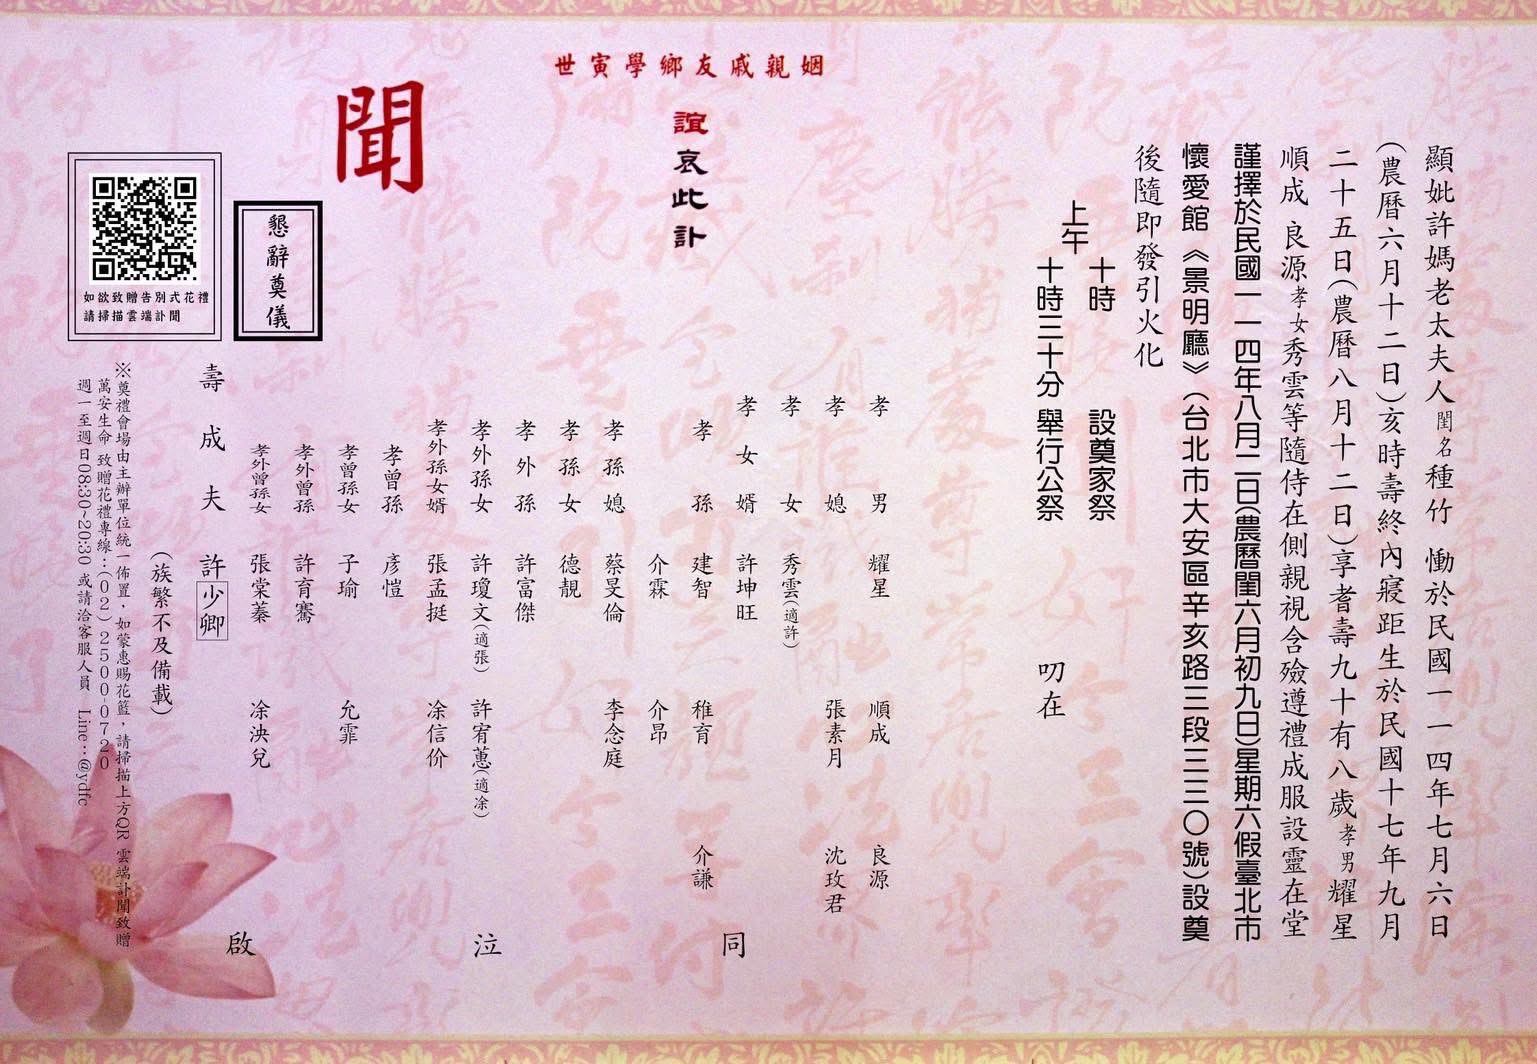 顯妣許媽老太夫人閨名種竹 慟於民國一一四年七月六日
(農曆六月十二日)亥時壽終內寢距生於民國十七年九月
二十五日(農曆八月十二日)享耆壽九十有八歲孝男耀星
順成 良源孝女秀雲等隨侍在側親視含殮遵禮成服設靈在堂
謹擇於民國一一四年八月二日(農曆閏六月初九日)星期六假臺北市
懷愛館《景明廳》(台北市大安區辛亥路三段三三〇號)設奠
後隨即發引火化
上午 十時 設奠家祭
十時三十分 舉行公祭
叨在
姻親戚友鄉學寅世
誼哀此訃
聞
孝男 耀星 順成 良源
孝媳 張素月 沈玫君
孝女 秀雲(適許)
孝女婿 許坤旺
孝孫 建智 稚育 介謙
介霖 介昂
孝孫媳 蔡旻倫 李念庭
孝孫女 德靚
孝外孫 許富傑
孝外孫女 許瓊文(適張) 許宥蕙(適凃)
孝外孫女婿 張孟挺 凃信价
孝曾孫 彥愷
孝曾孫女 子瑜 允霏
孝外曾孫 許育騫
孝外曾孫女 張棠蓁 凃泱兒
壽成夫 許少卿
同 泣 啟
(族繁不及備載)
懇辭奠儀
如欲致贈告別式花禮
請掃描雲端訃聞
※奠禮會場由主辦單位統一佈置，如蒙惠賜花籃，請掃描上方QR 雲端訃聞致贈
萬安生命 致贈花禮專線：(02) 2500-0720
週一至週日08:30~20:30 或請洽客服人員 Line：@ydfc